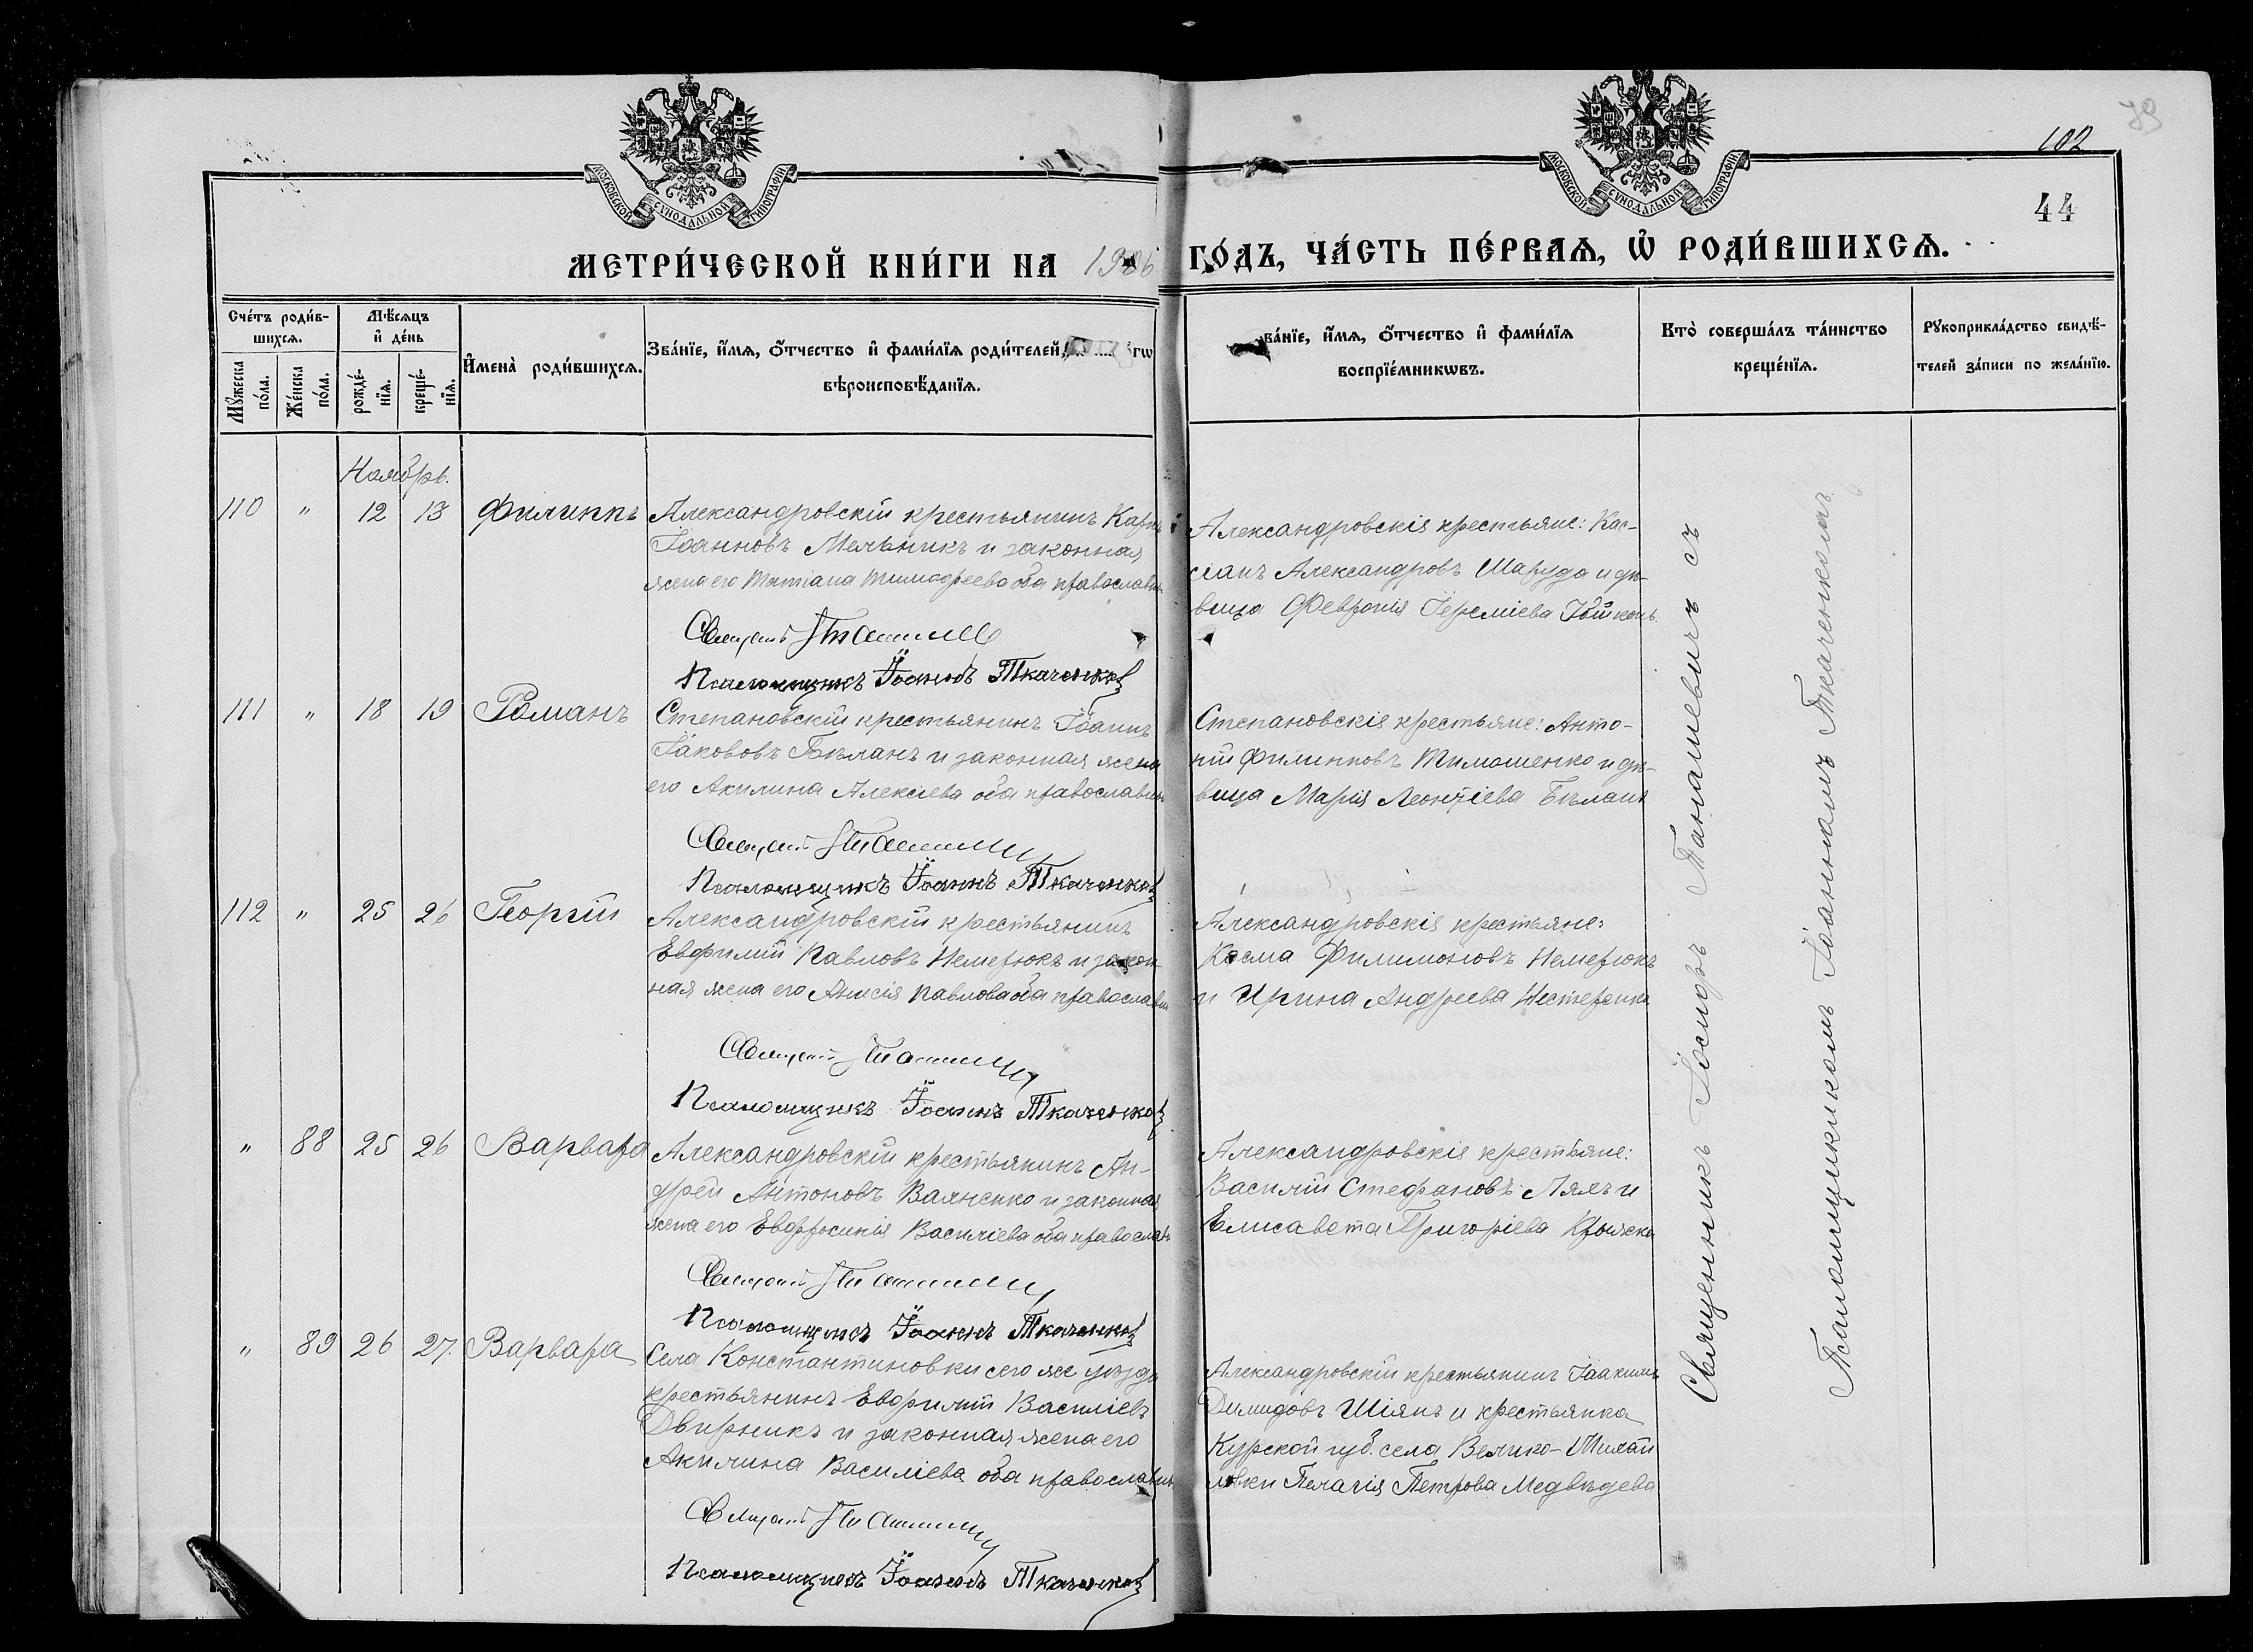 102
44
МОСКОВСКОЙ СѴНОДАЛЬНОЙ ТИПОГРАФІИ
МОСКОВСКОЙ СѴНОДАЛЬНОЙ ТИПОГРАФІИ
МЕТРИ́ЧЕСКОЙ КНИ́ГИ НА 1906 ГО́ДЪ, ЧА́СТЬ ПЕ́РВАѦ, Ѡ҆ РОДИ́ВШИХСѦ.
Сче́тъ роди́в-
шихсѧ.
Мꙋ́жеска по́ла.
Же́нска по́ла.
Мѣ́сѧцъ
и҆ де́нь
рожде́-
нїѧ.
креще́-
нїѧ.
И҆мена̀ роди́вшихсѧ.
Зва́нїе, и҆́мѧ, ѻ҆́тчество и҆ фами́лїѧ роди́телей,
вѣроисповѣ́данїѧ.
ва́нїе, и҆́мѧ, ѻ҆́тчество и҆ фами́лїѧ
воспрїе́мникѡвъ.
Кто̀ соверша́лъ та́инство
креще́нїѧ.
Рꙋкоприкла́дство свидѣ́-
телей за́писи по жела́нїю.
Ноябрь.
110 " 12 13 Филиппъ
Александровскій крестьянинъ Карпъ
Іоанновъ Мельникъ и законная
жена его Татіана Тимофеева оба православн
Священ
Псаломщикъ Іоаннъ Ткаченко
Александровскія крестьяне: Кас-
сіанъ Александровъ Шаруда и дѣ-
вица Февронія Іереміева
111 " 18 19 Романъ
Степановскій крестьянинъ Іоаннъ
Іаковovъ Бѣланъ и законная жена
его Акилина Алексіева оба православны
Священ
Псаломщикъ Іоаннъ Ткаченко
Степановскія крестьяне: Анто-
ній Филипповъ Тимошенко и дѣ-
вица Марія Леонтіева Бѣланъ
112 " 25 26 Георгій
Александровскій крестьянинъ
Евфимій Павловъ Немерюкъ и закон-
ная жена его Анисія Павлова оба православны
Священ
Псаломщикъ Іоаннъ Ткаченко
Александровскія крестьяне:
Косма Филимоновъ Немерюкъ
и Ирина Андреева Нестеренко
" 88 25 26 Варвара
Александровскій крестьянинъ Ан-
дрей Антоновъ Ваяненко и законная
жена его Евфросинія Василіева оба православ
Священ
Псаломщикъ Іоаннъ Ткаченко
Александровскія крестьяне:
Василій Стефановъ Ляхъ и
Елисавета Григоріева
" 89 26 27. Варвара
Села Константиновки сего же уѣзда
крестьянинъ Евфимій Василіевъ
Двирникъ и законная жена его
Акилина Василіева оба православны
Священ
Псаломщикъ Іоаннъ Ткаченко
Александровскій крестьянинъ Іоакимъ
Димидовъ Шіянъ и крестьянка
Курской губ. села Велико-Михай
ловки Пелагія Петрова Медвѣдева
Священникъ Іосифъ Танашевичъ съ
Псаломщикомъ Іоанномъ Ткаченкомъ